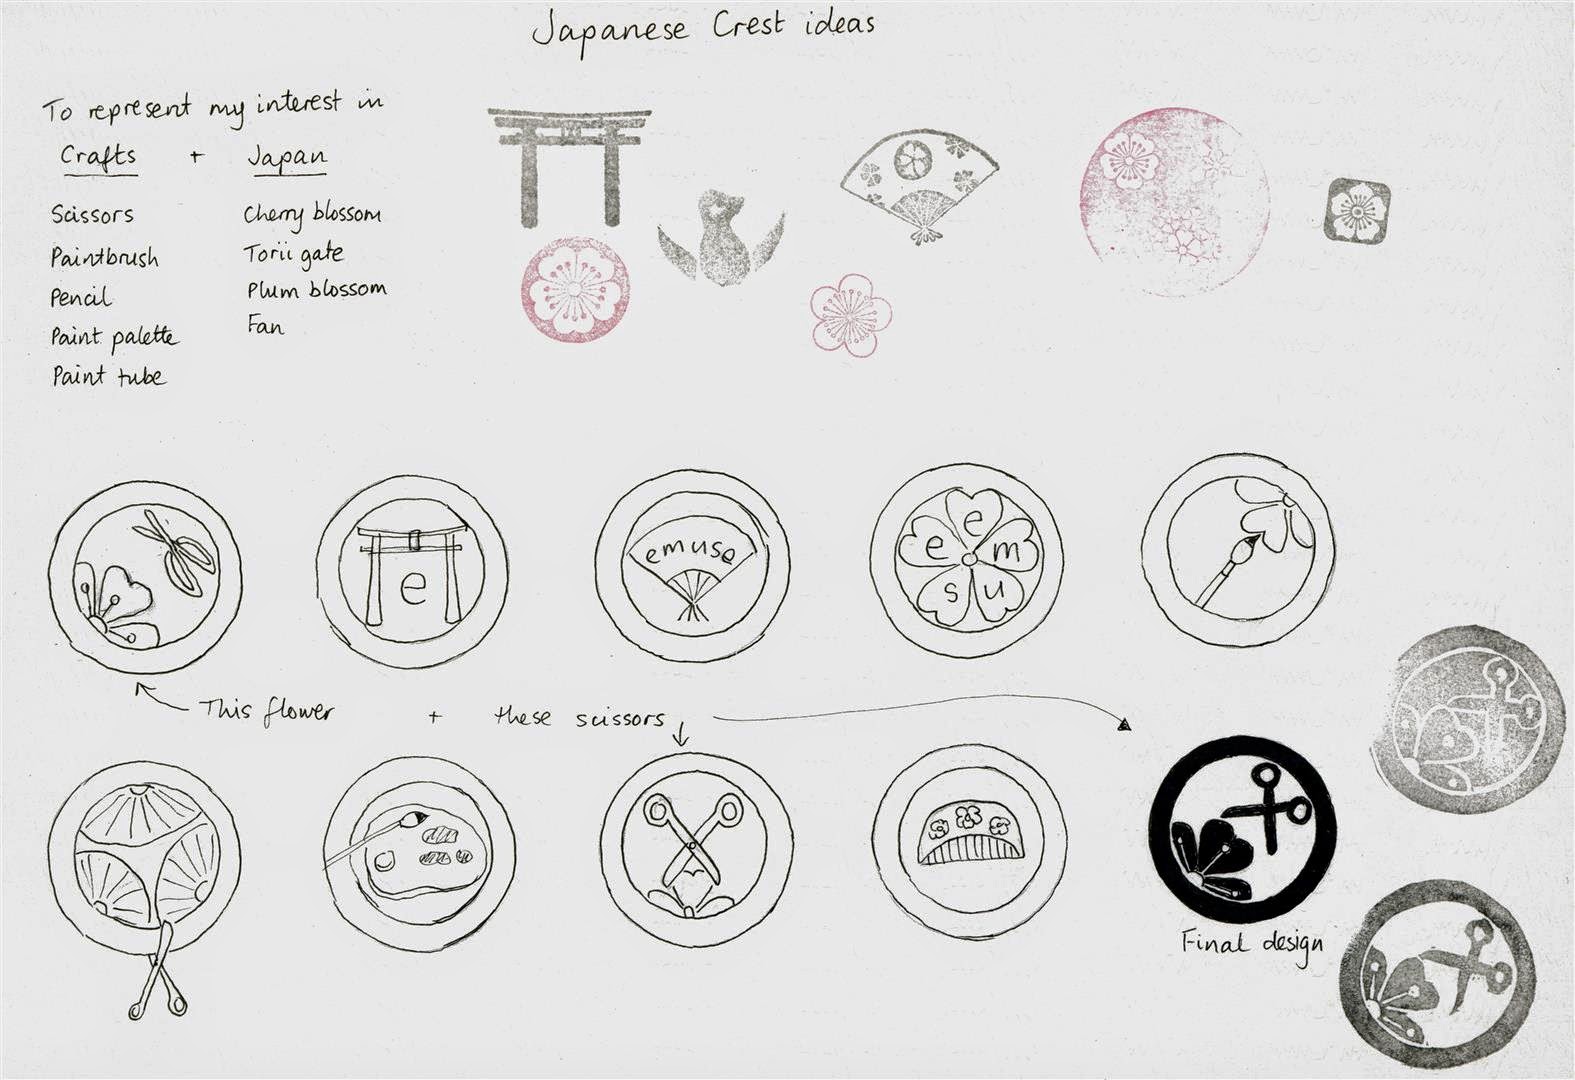 Japanese Crest ideas
To represent my interest in
Crafts + Japan
Scissors
Paintbrush
Pencil
Paint palette
Paint tube
Cherry blossom
Torii gate
Plum blossom
Fan
e
emuse
e m u s e
This flower + these scissors
Final design